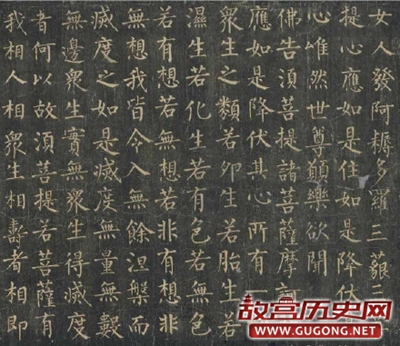 女人發阿耨多羅三藐三
提心應如是住如是降伏
心唯然世尊願樂欲聞
佛告須菩提諸菩薩摩訶
應如是降伏其心所有一
眾生之類若卵生若胎生若
濕生若化生若有色若無色
若有想若無想若非有想非
無想我皆令入無餘涅槃而
滅度之如是滅度無量無數
無邊眾生實無眾生得滅度
者何以故須菩提若菩薩有
我相人相眾生相壽者相即
故宫历史网
WWW.GUGONG.NET